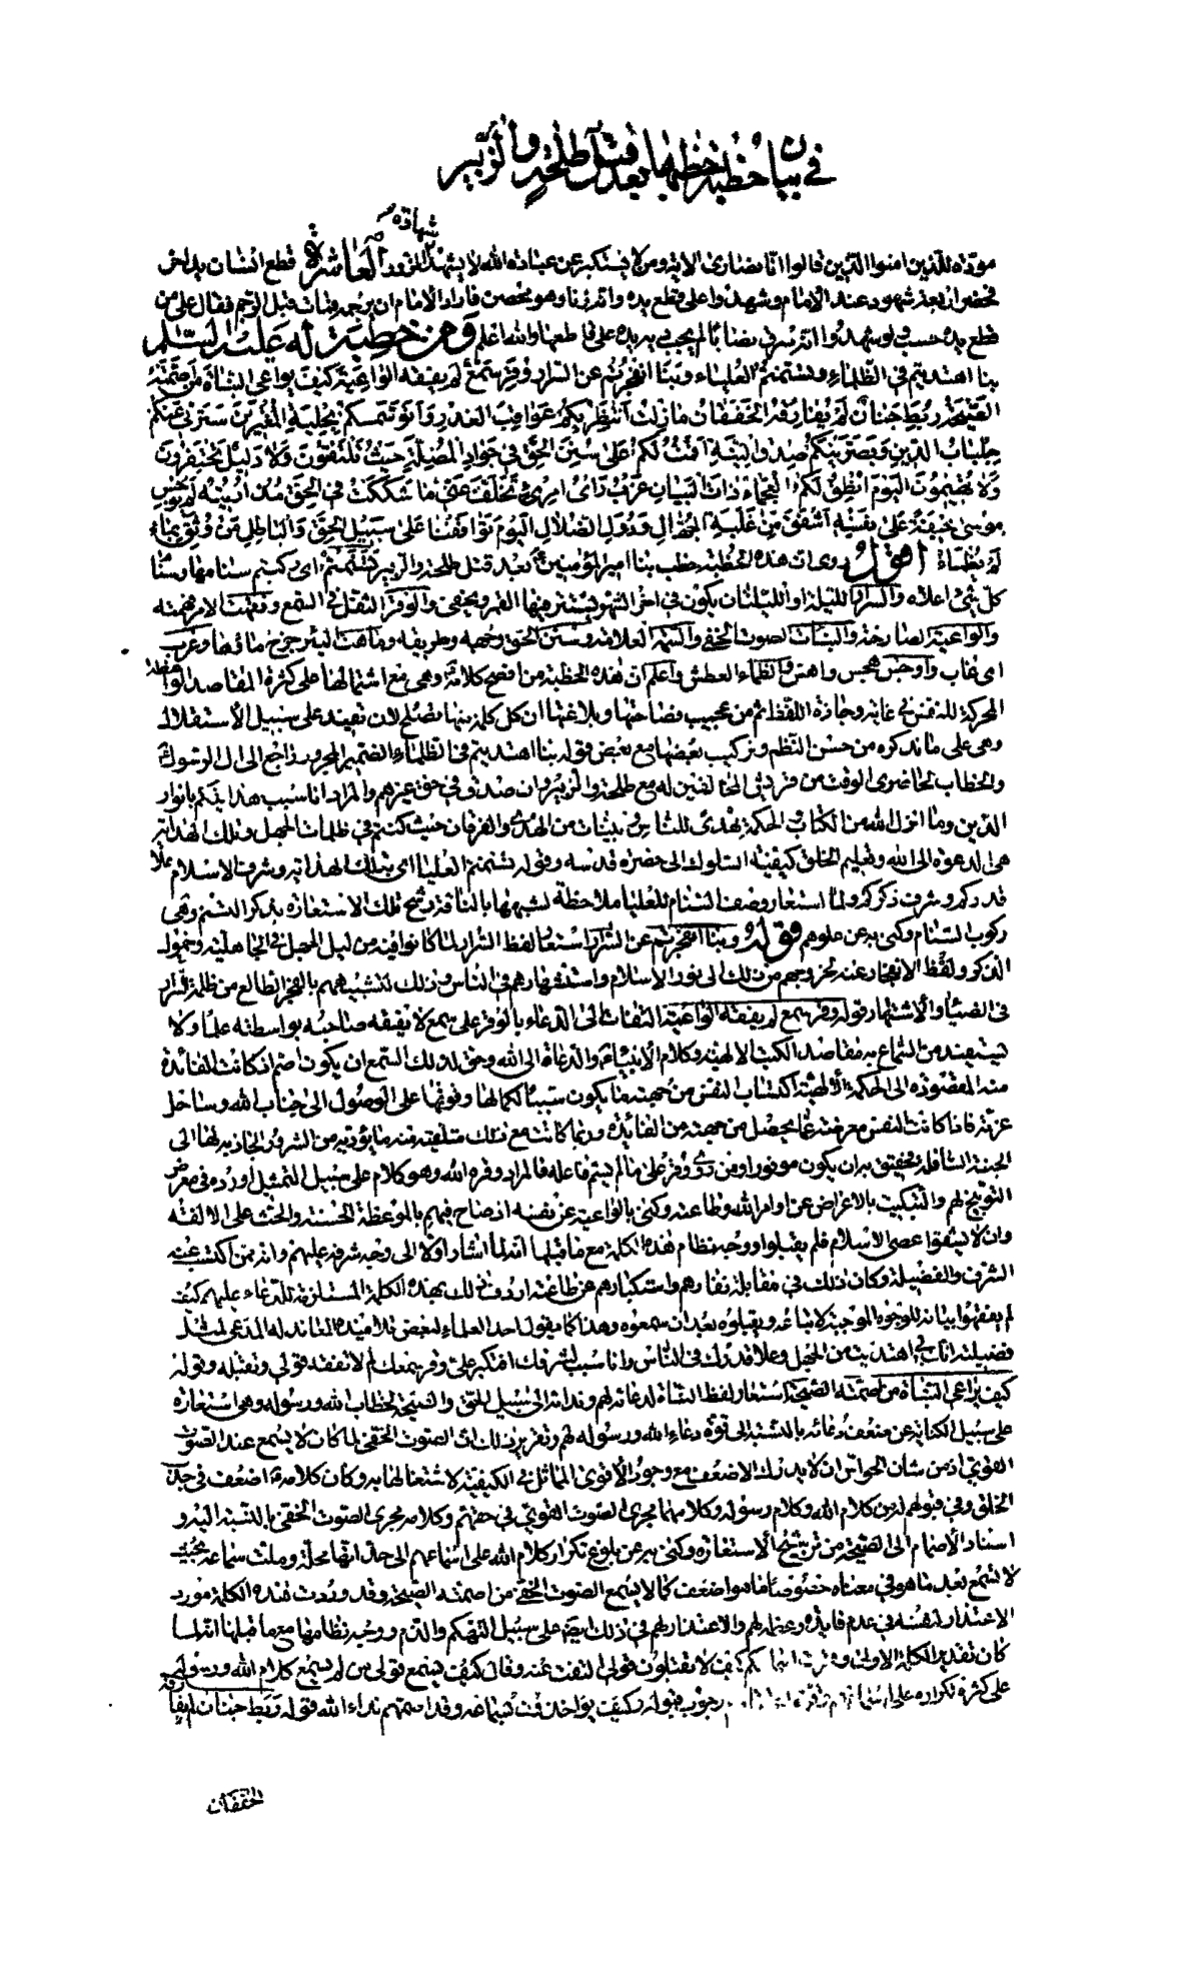 في بيان خطبة خطبها بعد قتل طلحة والزبير
شهادة
مودة للذين امنوا الذين قالوا انا نصارى الاية ومن لا يستكبر عن عبادة الله لا يشهد الزور العاشرة قطع انسان يد اخر
فحضر اربعة شهود عند الامام وشهدوا على قطع يده وانه زنا وهو محصن فاراد الامام ان يرجمه فمات قبل الرجم فقال على من
قطع يده حسب ولو شهدوا انه سرق نصابا لم يجب يد يده على قاطعها والله اعلم ومن خطبة له عليه السلم
بنا اهتديتم في الظلماء وتسنمتم العلياء وبنا انفجرتم عن السرار وقر سمع لم يفقه الواعية كيف يراعى النباة من اصمته
الصيحة ربط جنان لم يفارقه الخفقان ما زلت انتظر بكم عواقب الغدر واتوسمكم بحلية المغترين سترنى عنكم
جلباب الدين وبصرنيكم صدق النية اقمت لكم على سنن الحق في جواد المضلة حيث تلتقون ولا دليل وتحتفرون
ولا تميهون اليوم انطق لكم العجماء ذات البيان عزب راى امرئ تخلف عنى ما شككت في الحق مذ اريته لم يوجس
موسى خيفة على نفسه اشفق من غلبة الجهال ودول الضلال اليوم تواقفنا على سبيل الحق والباطل من وثق بماء
لم يظماء اقول روى ان هذه الخطبة خطب بها امير المؤمنين بعد قتل طلحة والزبير تسنمتم اى ركبتم سنامها وسنام
كل شئ اعلاه والسرار الليلة او الليلتان يكون في اخر الشهر يستتر فيها القمر ويخفى والوقر الثقل في السمع وفقهت الامر فهمته
والواعية الصارخة والنباة الصوت الخفي والسمة العلامة وسنن الحق وجهه وطريقه وماهت البئر خرج ماؤها وعزب
اى غاب واوجس هجس واحس والظماء العطش واعلم ان هذه الخطبة من افصح كلامه وهي مع اشتمالها على كثرة المقاصد الواعظة
المحركة للنفس في غاية وجازة اللفظ ثم من عجيب فصاحتها وبلاغتها ان كل كلمة منها تصلح لان تفيد على سبيل الاستقلال
وهي على ما نذكره من حسن النظم وتركيب بعضها مع بعض قوله بنا اهتديتم في الظلماء الضمير المجرور راجع الى ال الرسول
والخطاب لحاضرى الوقت من قريش المخالفين له مع طلحة والزبير وان صدق في حق غيرهم والمراد انا سبب هدايتكم بانوار
الدين وما انزل الله من الكتاب والحكمة هدى للناس وبينات من الهدى والفرقان حيث كنتم في ظلمات الجهل وتلك الهداية
هي الدعوة الى الله وتعليم الخلق كيفية السلوك الى حضرة قدسه وقوله تسنمتم العليا اى بتلك الهداية وشرف الاسلام علا
قدركم وشرف ذكركم ولما استعار وصف السنام للعليا ملاحظة لشبهها بالناقة رشح تلك الاستعارة بذكر التسنم وهي
ركوب السنام وكنى به عن علوهم قوله وبنا انفجرتم عن السرار استعار لفظ السرار لما كانوا فيه من ليل الجهل في الجاهلية وخمول
الذكر ولفظ الانفجار عنه لخروجهم من ذلك الى نور الاسلام واشتهارهم في الناس وذلك لتشبيههم بالفجر الطالع من ظلمة السرار
في الضياء والاشتهار قوله وقر سمع لم يفقه الواعية التفات الى الدعاء بالوقر على سمع لا يفقه صاحبه بواسطته علما ولا
يستفيد من السماع به مقاصد الكتب الالهية وكلام الانبياء والدعاة الى الله وحق لذلك السمع ان يكون اصم اذ كانت الفائدة
منه المقصودة الى الحكمة الالهية اكتساب النفس من جهته ما يكون سببا لكمالها وقوتها على الوصول الى جناب الله وساحل
عزته فاذا كانت النفس معرضة عما يحصل من جهته من الفائدة وربما كانت مع ذلك متلقية منه ما يؤديه من الشرور الجاذبة لها الى
الجنبة السافلة فحقيق به ان يكون موقورا ومن روى وقر على ما لم يسم فاعله فالمراد وقره الله وهو كلام على سبيل التمثيل اورده في معرض
التوبيخ لهم والتبكيت بالاعراض عن اوامر الله وطاعته وكنى بالواعية عن نفسه اذ صاح فيهم بالموعظة الحسنة والحث على الالفة
وان لا يشقوا عصى الاسلام فلم يقبلوا ووجه نظام هذه الكلمة مع ما قبلها انه لما اشار اولا الى وجه شرفه عليهم وانه ممن اكتسب عنه
الشرف والفضيلة وكان ذلك في مقابلة نفارهم واستكبارهم عن طاعته اردف ذلك بهذه الكلمة المستلزمة للدعاء عليهم كيف
لم يفقهوا بيانه للوجوه الموجبة لاتباعه ويقبلوه بعد ان سمعوه وهذا كما يقول احد العلماء لبعض تلاميذه المعاند له المدعى لمثل
فضيلته انك بي اهتديت من الجهل وعلا قدرك في الناس وانا سبب لشرفك افتكبر على وقر سمعك لم لا تفقه قولي وتقبله وقوله
كيف يراعى النباة من اصمته الصيحة استعار لفظ النباة لدعائه لهم وندائه الى سبيل الحق والصيحة لخطاب الله ورسوله وهي استعارة
على سبيل الكناية عن ضعف دعائه بالنسبة الى قوة دعاء الله ورسوله لهم وتقرير ذلك ان الصوت الخفى لما كان لا يسمع عند الصوت
القوي اذ من شان الحواس ان لا يدرك الاضعف مع وجود الاقوى المماثل في الكيفية لاشتغالها به وكان كلامه اضعف في جذب
الخلق وفي قبولهم له من كلام الله وكلام رسوله وكلامهما مجرى الصوت القوي في حقهم وكلامه مجرى الصوت الخفى بالنسبة اليه و
اسناد الاصمام الى الصيحة من ترشيح الاستعارة وكنى به عن بلوغ تكرار كلام الله على اسماعهم الى حد انها محلة وملت سماعه بحيث
لا تسمع بعد ما هو في معناه خصوصا ما هو اضعف كما لا يسمع الصوت الخفى من اصمته الصيحة وقد وردت هذه الكلمة مورد
الاعتذار لنفسه في عدم فايدة وعظه لهم والاعتذار لهم في ذلك ايضا على سبيل التهكم والذم ووجه نظامها مع ما قبلها انه لما
كان تقدير الكلمة الاولى وقرت اسماعكم كيف لا تقبلون قولي التفت عنه وقال كيف يسمع قولي من لم يسمع كلام الله ورسوله
على كثرة تكراره على اسماعهم وقوة وجوب قبوله وكيف يؤاخذ سماعه وقد اصمتهم نداء الله قوله ربط جنان لم يفارقه
الخفقان